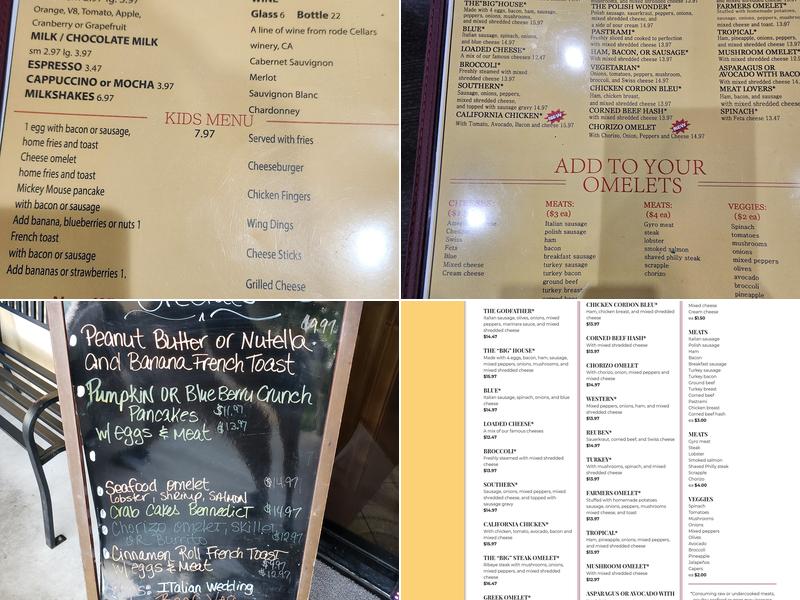 WINE
Glass 6 Bottle 22
A line of wine from rode Cellars
winery, CA
Cabernet Sauvignon
Merlot
Sauvignon Blanc
Chardonney
Orange, V8, Tomato, Apple,
Cranberry or Grapefruit
MILK / CHOCOLATE MILK
sm 2.97 lg. 3.97
ESPRESSO 3.47
CAPPUCCINO or MOCHA 3.97
MILKSHAKES 6.97
KIDS MENU
7.97
1 egg with bacon or sausage,
home fries and toast
Cheese omelet
home fries and toast
Mickey Mouse pancake
with bacon or sausage
Add banana, blueberries or nuts 1
French toast
with bacon or sausage
Add bananas or strawberries 1.
Served with fries
Cheeseburger
Chicken Fingers
Wing Dings
Cheese Sticks
Grilled Cheese
THE "BIG" HOUSE*
Made with 4 eggs, bacon, ham, sausage,
peppers, onions, mushrooms,
and mixed shredded cheese 15.97
BLUE*
Italian sausage, spinach, onions,
and blue cheese 14.97
LOADED CHEESE*
A mix of our famous cheeses 12.47
BROCCOLI*
Freshly steamed with mixed
shredded cheese 13.97
SOUTHERN*
Sausage, onions, peppers,
mixed shredded cheese,
and topped with sausage gravy 14.97
CALIFORNIA CHICKEN*
With Tomato, Avocado, Bacon and cheese 15.97
THE POLISH WONDER*
Polish sausage, sauerkraut, peppers, onions,
mixed shredded cheese, and
a side of sour cream 14.97
PASTRAMI*
Freshly sliced and cooked to perfection
with mixed shredded cheese 13.97
HAM, BACON, OR SAUSAGE*
With mixed shredded cheese 13.97
VEGETARIAN*
Onions, tomatoes, peppers, mushrooms,
broccoli, and Swiss cheese 14.97
CHICKEN CORDON BLEU*
Ham, chicken breast,
and mixed shredded cheese 13.97
CORNED BEEF HASH*
with mixed shredded cheese 13.97
CHORIZO OMELET
With Chorizo, Onion, Peppers and Cheese 14.97
FARMERS OMELET*
Stuffed with homemade potatoes,
TROPICAL*
MUSHROOM OMELET*
ASPARAGUS OR
AVOCADO WITH BACON
MEAT LOVERS*
Ham, bacon, and sausage
with mixed shredded cheese
SPINACH*
with Feta cheese 13.47
ADD TO YOUR
OMELETS
CHEESES:
Swiss
Feta
Blue
Mixed cheese
Cream cheese
MEATS:
($3 ea)
Italian sausage
polish sausage
ham
bacon
breakfast sausage
turkey sausage
turkey bacon
ground beef
turkey breast
MEATS:
($4 ea)
Gyro meat
steak
lobster
smoked salmon
shaved philly steak
scrapple
chorizo
VEGGIES:
($2 ea)
Spinach
tomatoes
mushrooms
onions
mixed peppers
olives
avocado
broccoli
pineapple
$9.97
Peanut Butter or Nutella
and Banana French Toast
Pumpkin OR Blue Berry Crunch
Pancakes $11.97
w/ eggs & Meat $13.97
Seafood omelet $14.97
Lobster, Shrimp, SALMON
Crab Cakes Bennedict $14.97
Chorizo omelet, skillet
OR Burrito $12.97
Cinnamon Roll French Toast
w/ eggs & Meat $9.97
$12.97
Italian Wedding
THE GODFATHER*
Italian sausage, olives, onions, mixed
peppers, marinara sauce, and mixed
shredded cheese
$14.47
THE "BIG" HOUSE*
Made with 4 eggs, bacon, ham, sausage,
mixed peppers, onions, mushrooms, and
mixed shredded cheese
$15.97
BLUE*
Italian sausage, spinach, onions, and blue
cheese
$14.97
LOADED CHEESE*
A mix of our famous cheeses
$12.47
BROCCOLI*
Freshly steamed with mixed shredded
cheese
$13.97
SOUTHERN*
Sausage, onions, mixed peppers, mixed
shredded cheese, and topped with
sausage gravy
$14.97
CALIFORNIA CHICKEN*
With chicken, tomato, avocado, bacon and
mixed cheese
$15.97
THE "BIG" STEAK OMELET*
Ribeye steak with mushrooms, onions,
mixed peppers, and mixed shredded
cheese
$16.47
GREEK OMELET*
CHICKEN CORDON BLEU*
Ham, chicken breast, and mixed shredded
cheese
$13.97
CORNED BEEF HASH*
With mixed shredded cheese
$13.97
CHORIZO OMELET
With chorizo, onion, mixed peppers and
cheese
$14.97
WESTERN*
Mixed peppers, onions, ham, and mixed
shredded cheese
$13.97
REUBEN*
Sauerkraut, corned beef, and Swiss cheese
$14.97
TURKEY*
With mushrooms, spinach, and mixed
shredded cheese
$13.97
FARMERS OMELET*
Stuffed with homemade potatoes
sausage, onions, peppers, mushrooms
mixed cheese, and toast.
$13.97
TROPICAL*
Ham, pineapple, onions, mixed peppers,
and mixed shredded cheese
$13.97
MUSHROOM OMELET*
With mixed shredded cheese
$12.97
ASPARAGUS OR AVOCADO WITH
Mixed cheese
Cream cheese
ea $1.50
MEATS
Italian sausage
Polish sausage
Ham
Bacon
Breakfast sausage
Turkey sausage
Turkey bacon
Ground beef
Turkey breast
Pastrami
Chicken breast
Corned beef hash
ea $3.00
MEATS
Gyro meat
Steak
Lobster
Smoked salmon
Shaved Philly steak
Scrapple
Chorizo
ea $4.00
VEGGIES
Spinach
Tomatoes
Mushrooms
Onions
Mixed peppers
Olives
Avocado
Broccoli
Pineapple
Jalapeños
Capers
ea $2.00
*Consuming raw or undercooked meats,